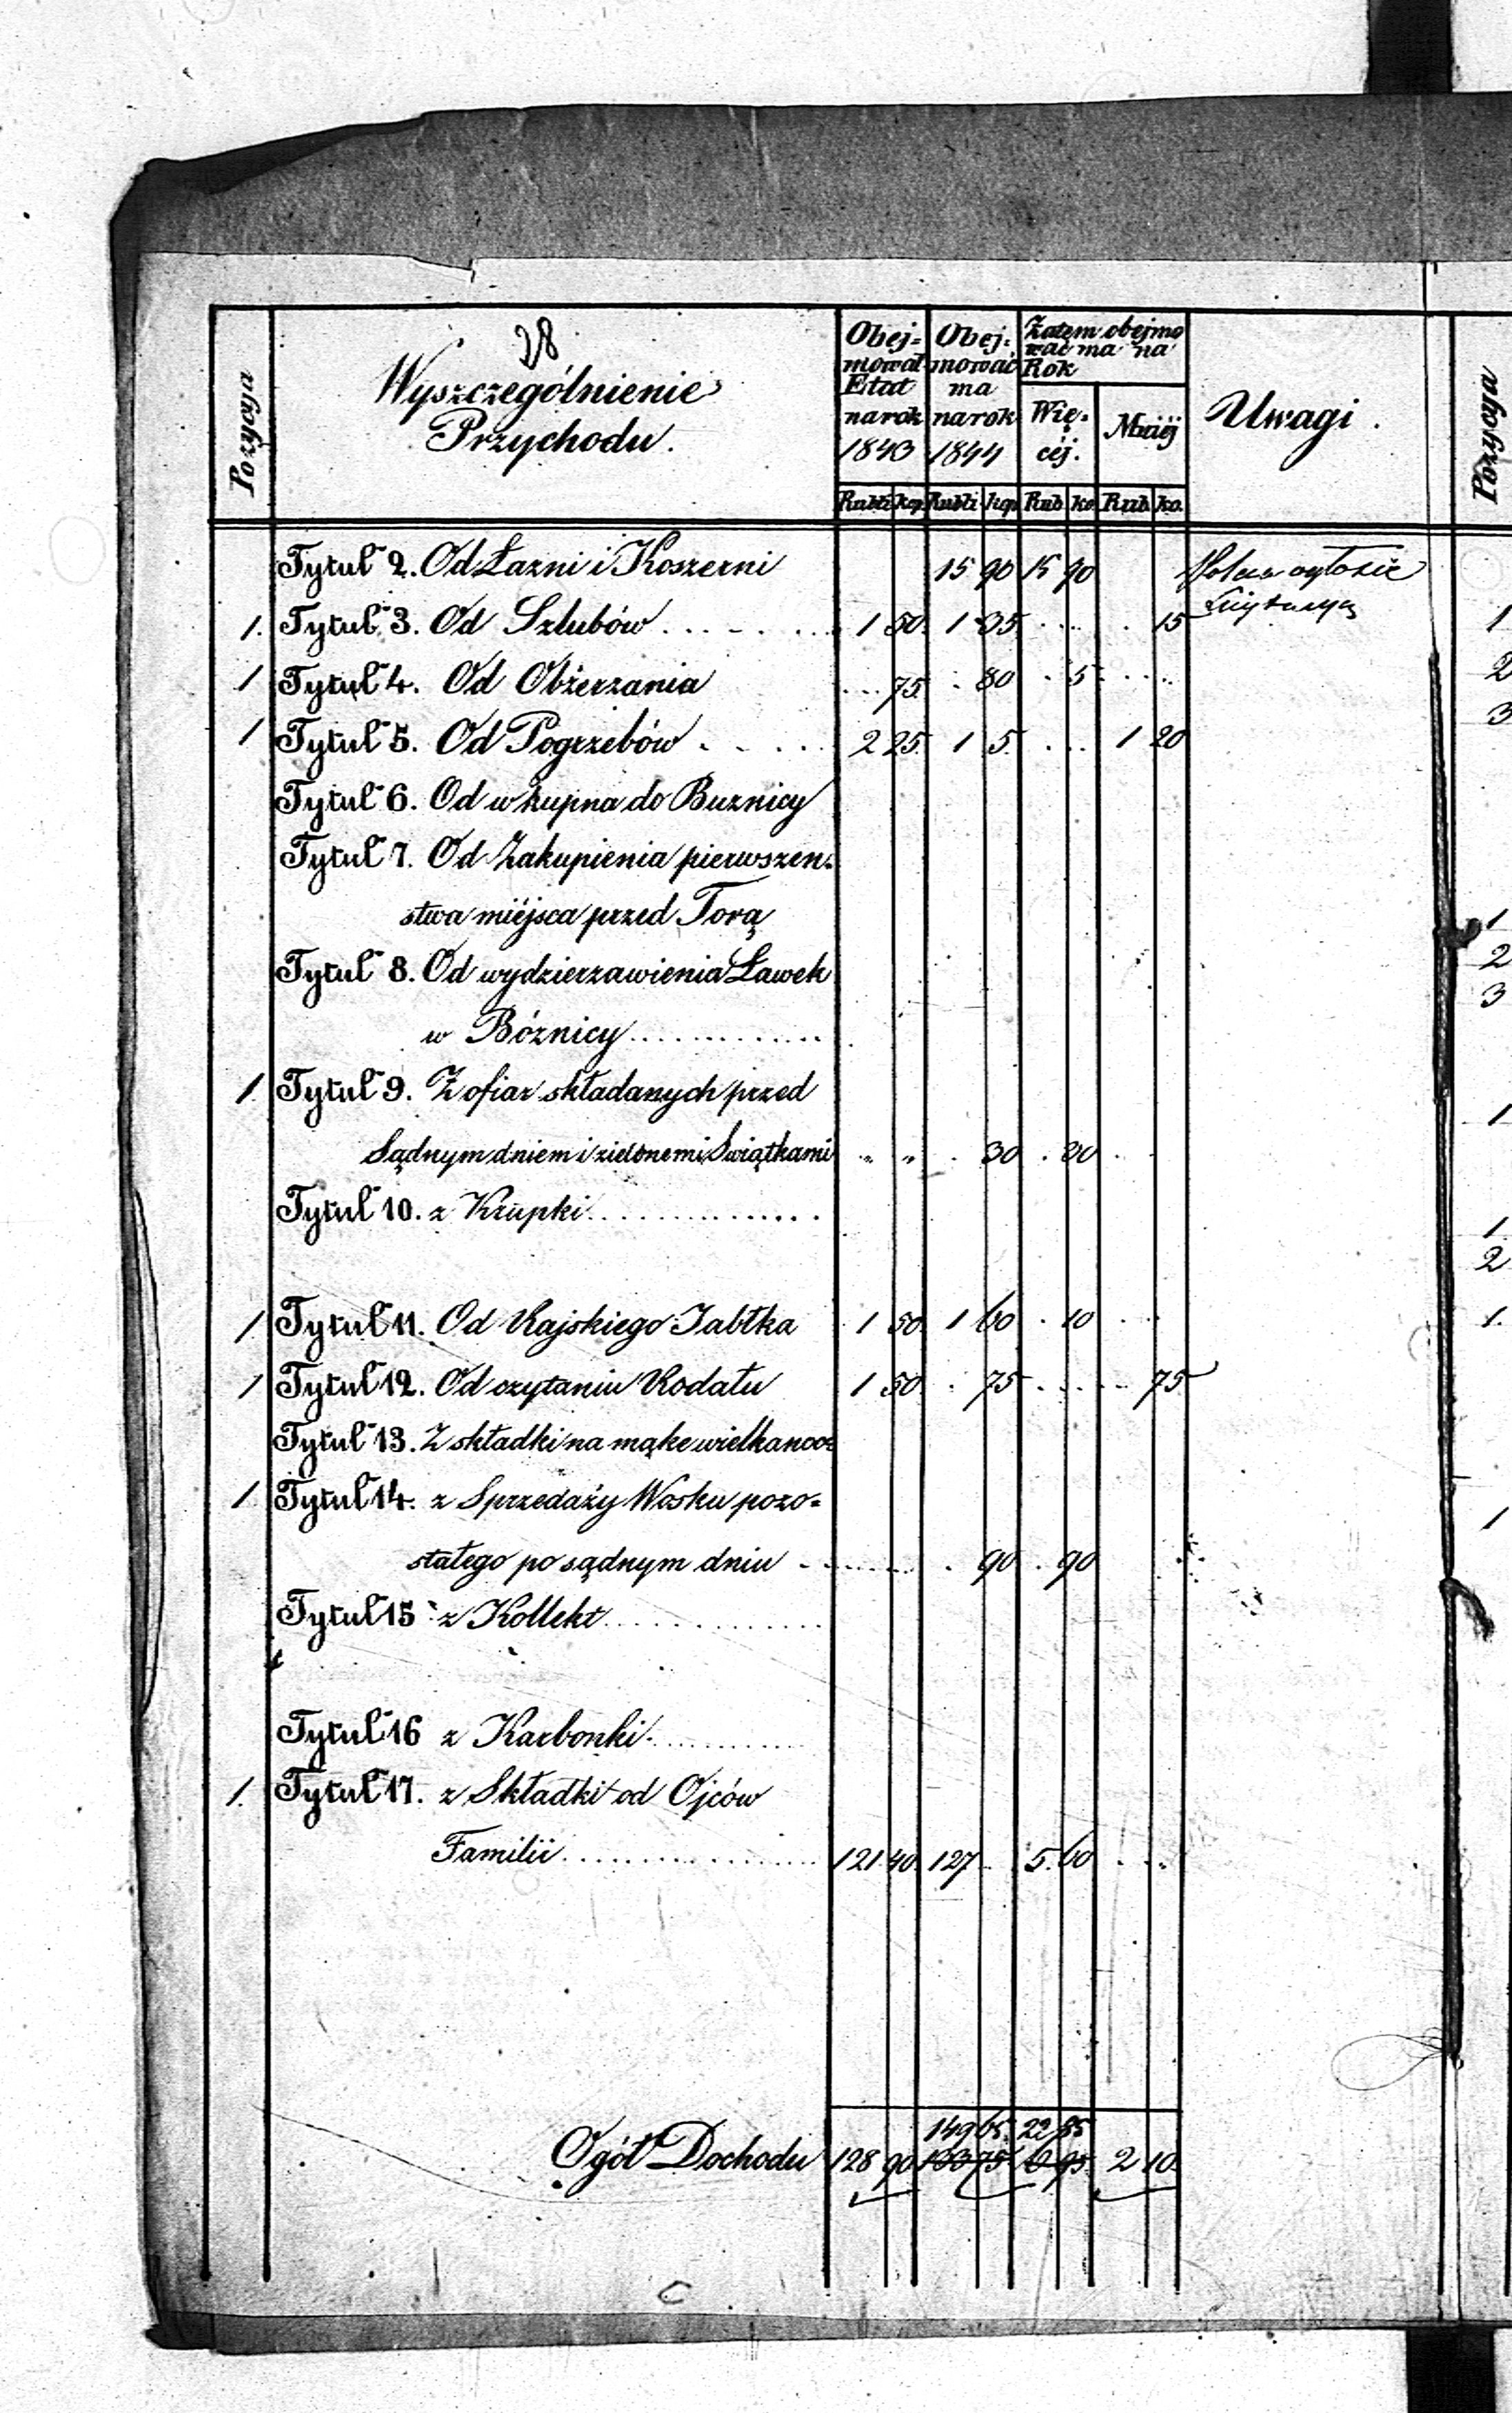 28
Pozycya
Wyszczególnienie
Przychodu.
Obej=
mował
Etat
na rok
1843
Obej=
mować
ma
na rok
1844
Zatem obejmo
wać ma na
Rok
Wię=
céj.
Mniéj
Uwagi.
Rubli kop Rubli kop Rub ko Rub ko.
Tytuł 2. Od Łazni i Koszerni 15 90 15 90
1. Tytuł 3. Od Szlubów 1 50 1 35 15
1 Tytuł 4. Od Obżerzania 75 80 5
1 Tytuł 5. Od Pogrzebów 2 25 1 5 1 20
Tytuł 6. Od wkupna do Buznicy
Tytuł 7. Od Zakupienia pierwszen=
stwa miéjsca przed Torą
Tytuł 8. Od wydzierzawienia Ławek
w Bóznicy
1 Tytuł 9. Z ofiar składanych przed
Sądnym dniem i zielonemi Swiątkami „ „ 30 30
Tytuł 10. z Krupki
1 Tytuł 11. Od Rajskiego Jabłka 1 50 1 60 10
1 Tytuł 12. Od czytaniu Rodału 1 50 75 75
Tytuł 13. Z składki na mąke wielkanoc
1 Tytuł 14. z Sprzedaży Wosku pozo=
stałego po sądnym dniu 90 90
Tytuł 15 z Kollekt
Tytuł 16 z Karbonki
1. Tytuł 17. z Składki od Ojców
Familii 121 40 127 5 60
149 65 22 85
Ogół Dochodu 128 90 133 75 6 95 2 10
Pozycya
1
2
3
1
2
3
1
1
2
1.
1